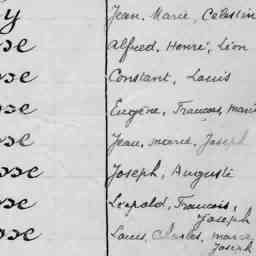 y Jean. Marie, Célestin
se Alfred. Henri, Léon
se Constant, Louis
se Eugène, François, marie
se Jean, marie, Joseph
sse Joseph, Auguste
se Léopold, François,
Joseph
sse Louis, Charles, marie
Joseph